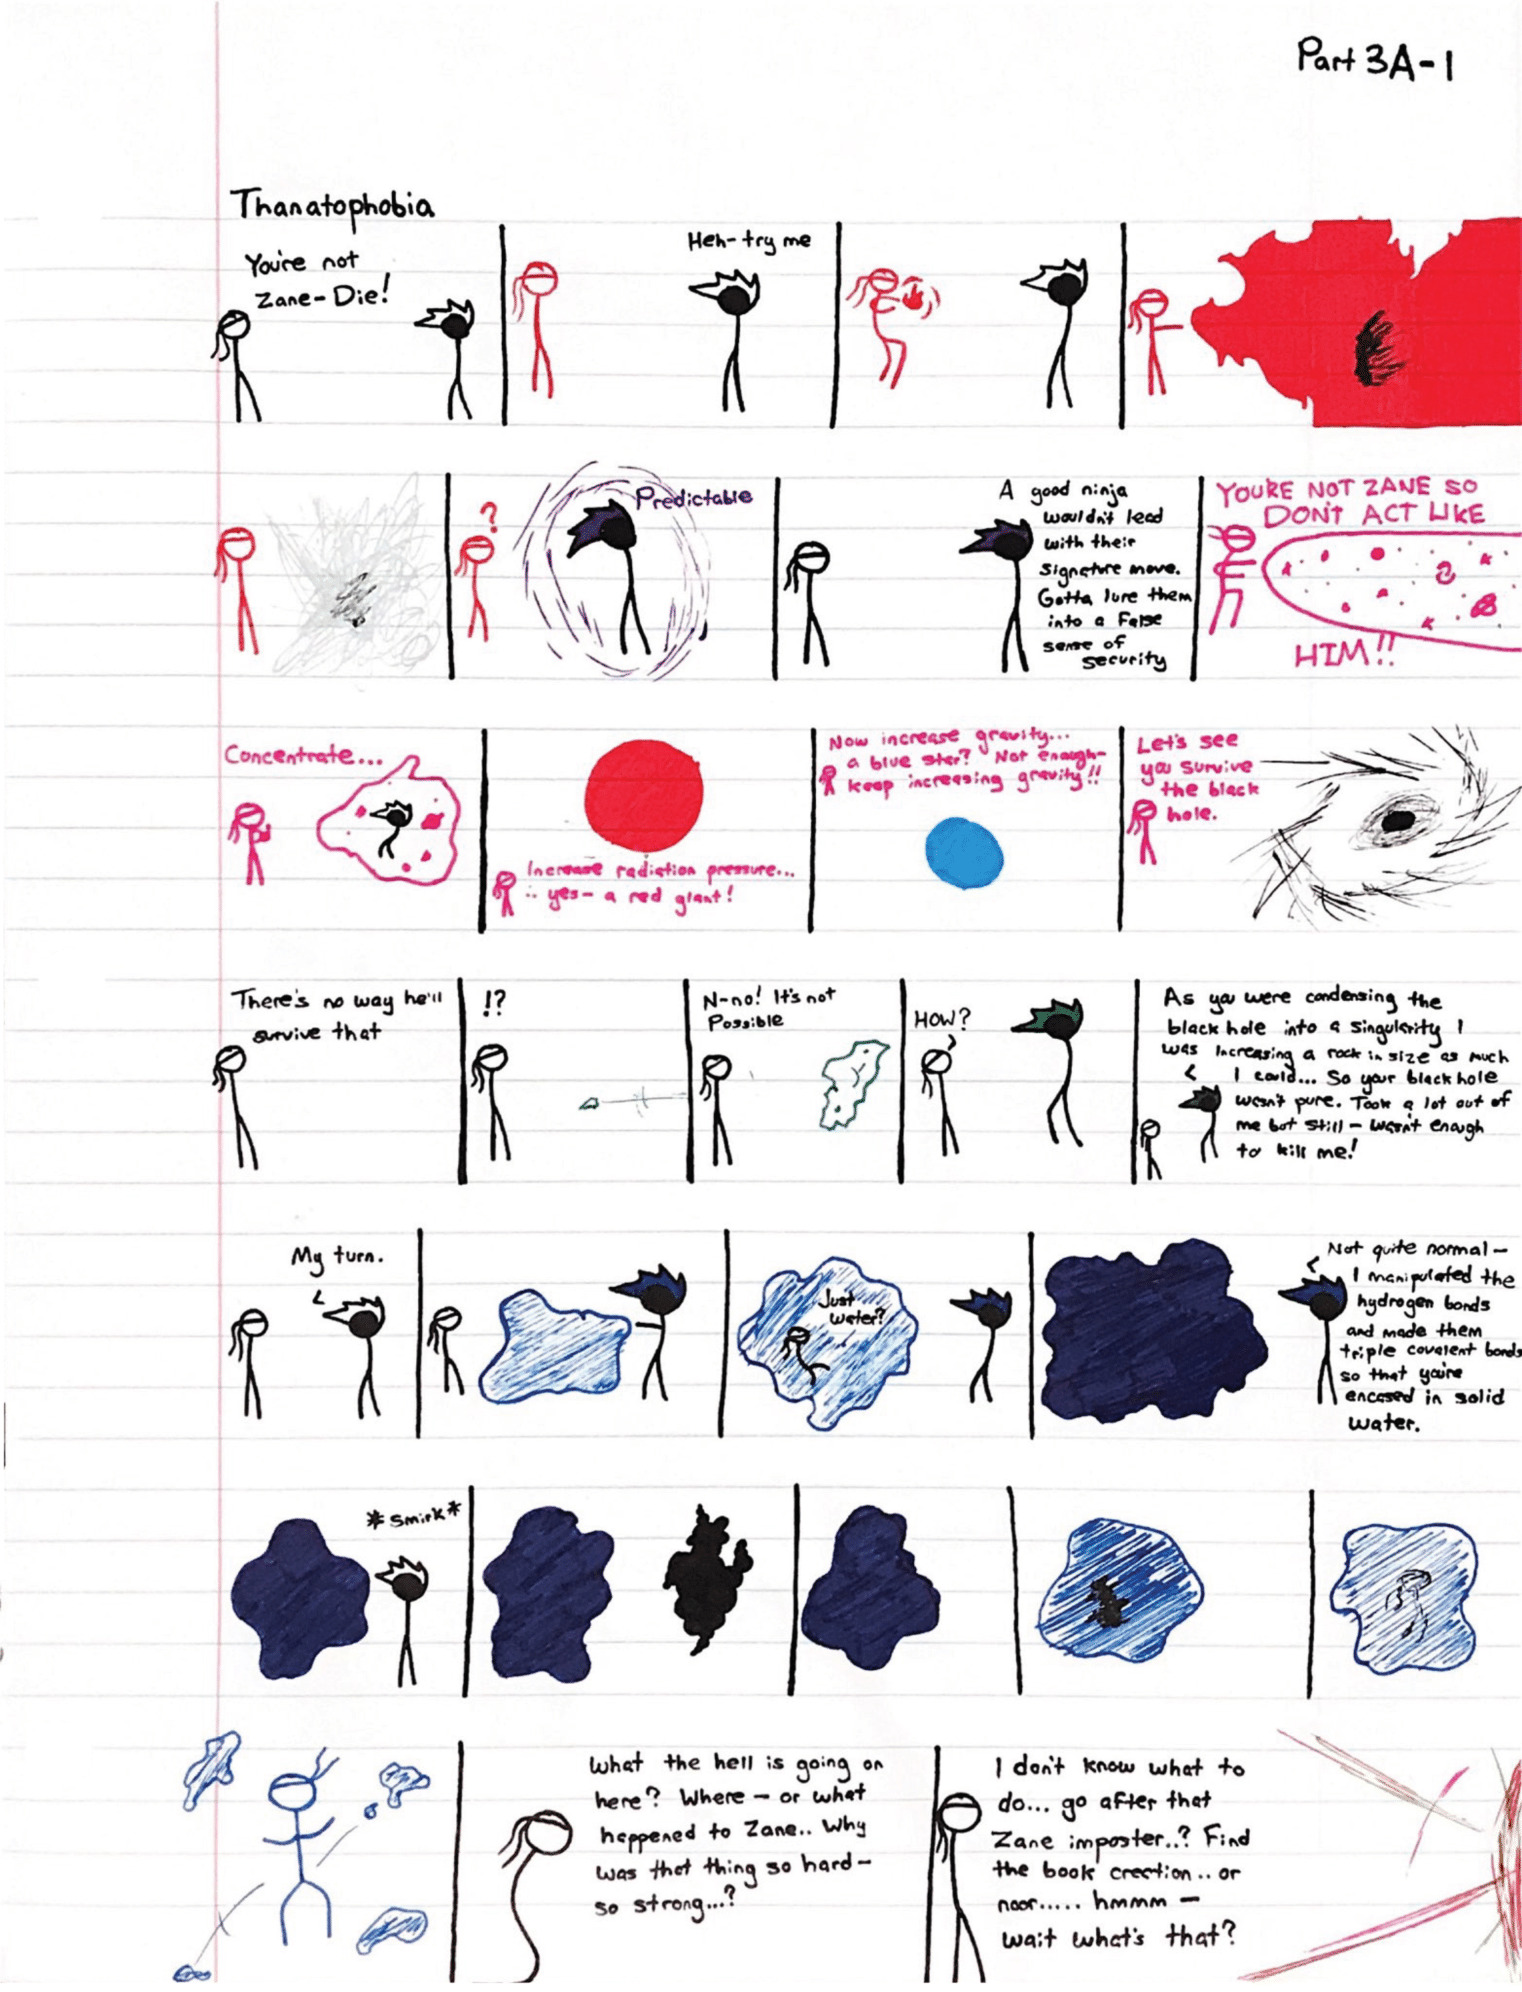 Part 3A-1
Thanatophobia
You're not
Zane-Die!
Heh-try me
?
Predictable
A good ninja
wouldn't lead
with their
signature move.
Gotta lure them
into a False
sense of
security
YOU'RE NOT ZANE SO
DON'T ACT LIKE
HIM!!
Concentrate...
Increase radiation pressure...
.. yes- a red giant!
Now increase gravity...
a blue star? Not enough-
keep increasing gravity!!
Let's see
you survive
the black
hole.
There's no way he'll
survive that
!?
N-no! It's not
Possible
HOW?
As you were condensing the
black hole into a singularity I
was increasing a rock in size as much
I could... So your black hole
wasn't pure. Took a lot out of
me but still - wasn't enough
to kill me!
My turn.
Just
water?
Not quite normal-
I manipulated the
hydrogen bonds
and made them
triple covalent bonds
so that you're
encased in solid
water.
*Smirk*
What the hell is going on
here? Where - or what
happened to Zane.. Why
was that thing so hard-
so strong...?
I don't know what to
do... go after that
Zane imposter..? Find
the book crection.. or
noor..... hmmm -
wait what's that?